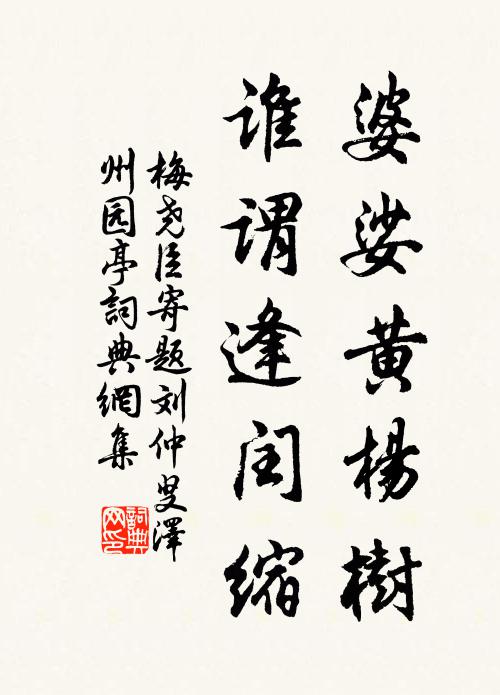 婆娑黄楊樹
谁谓逢闰缩
梅尧臣寄题刘仲叟澤
州园亭詞典網集
詞典
网印